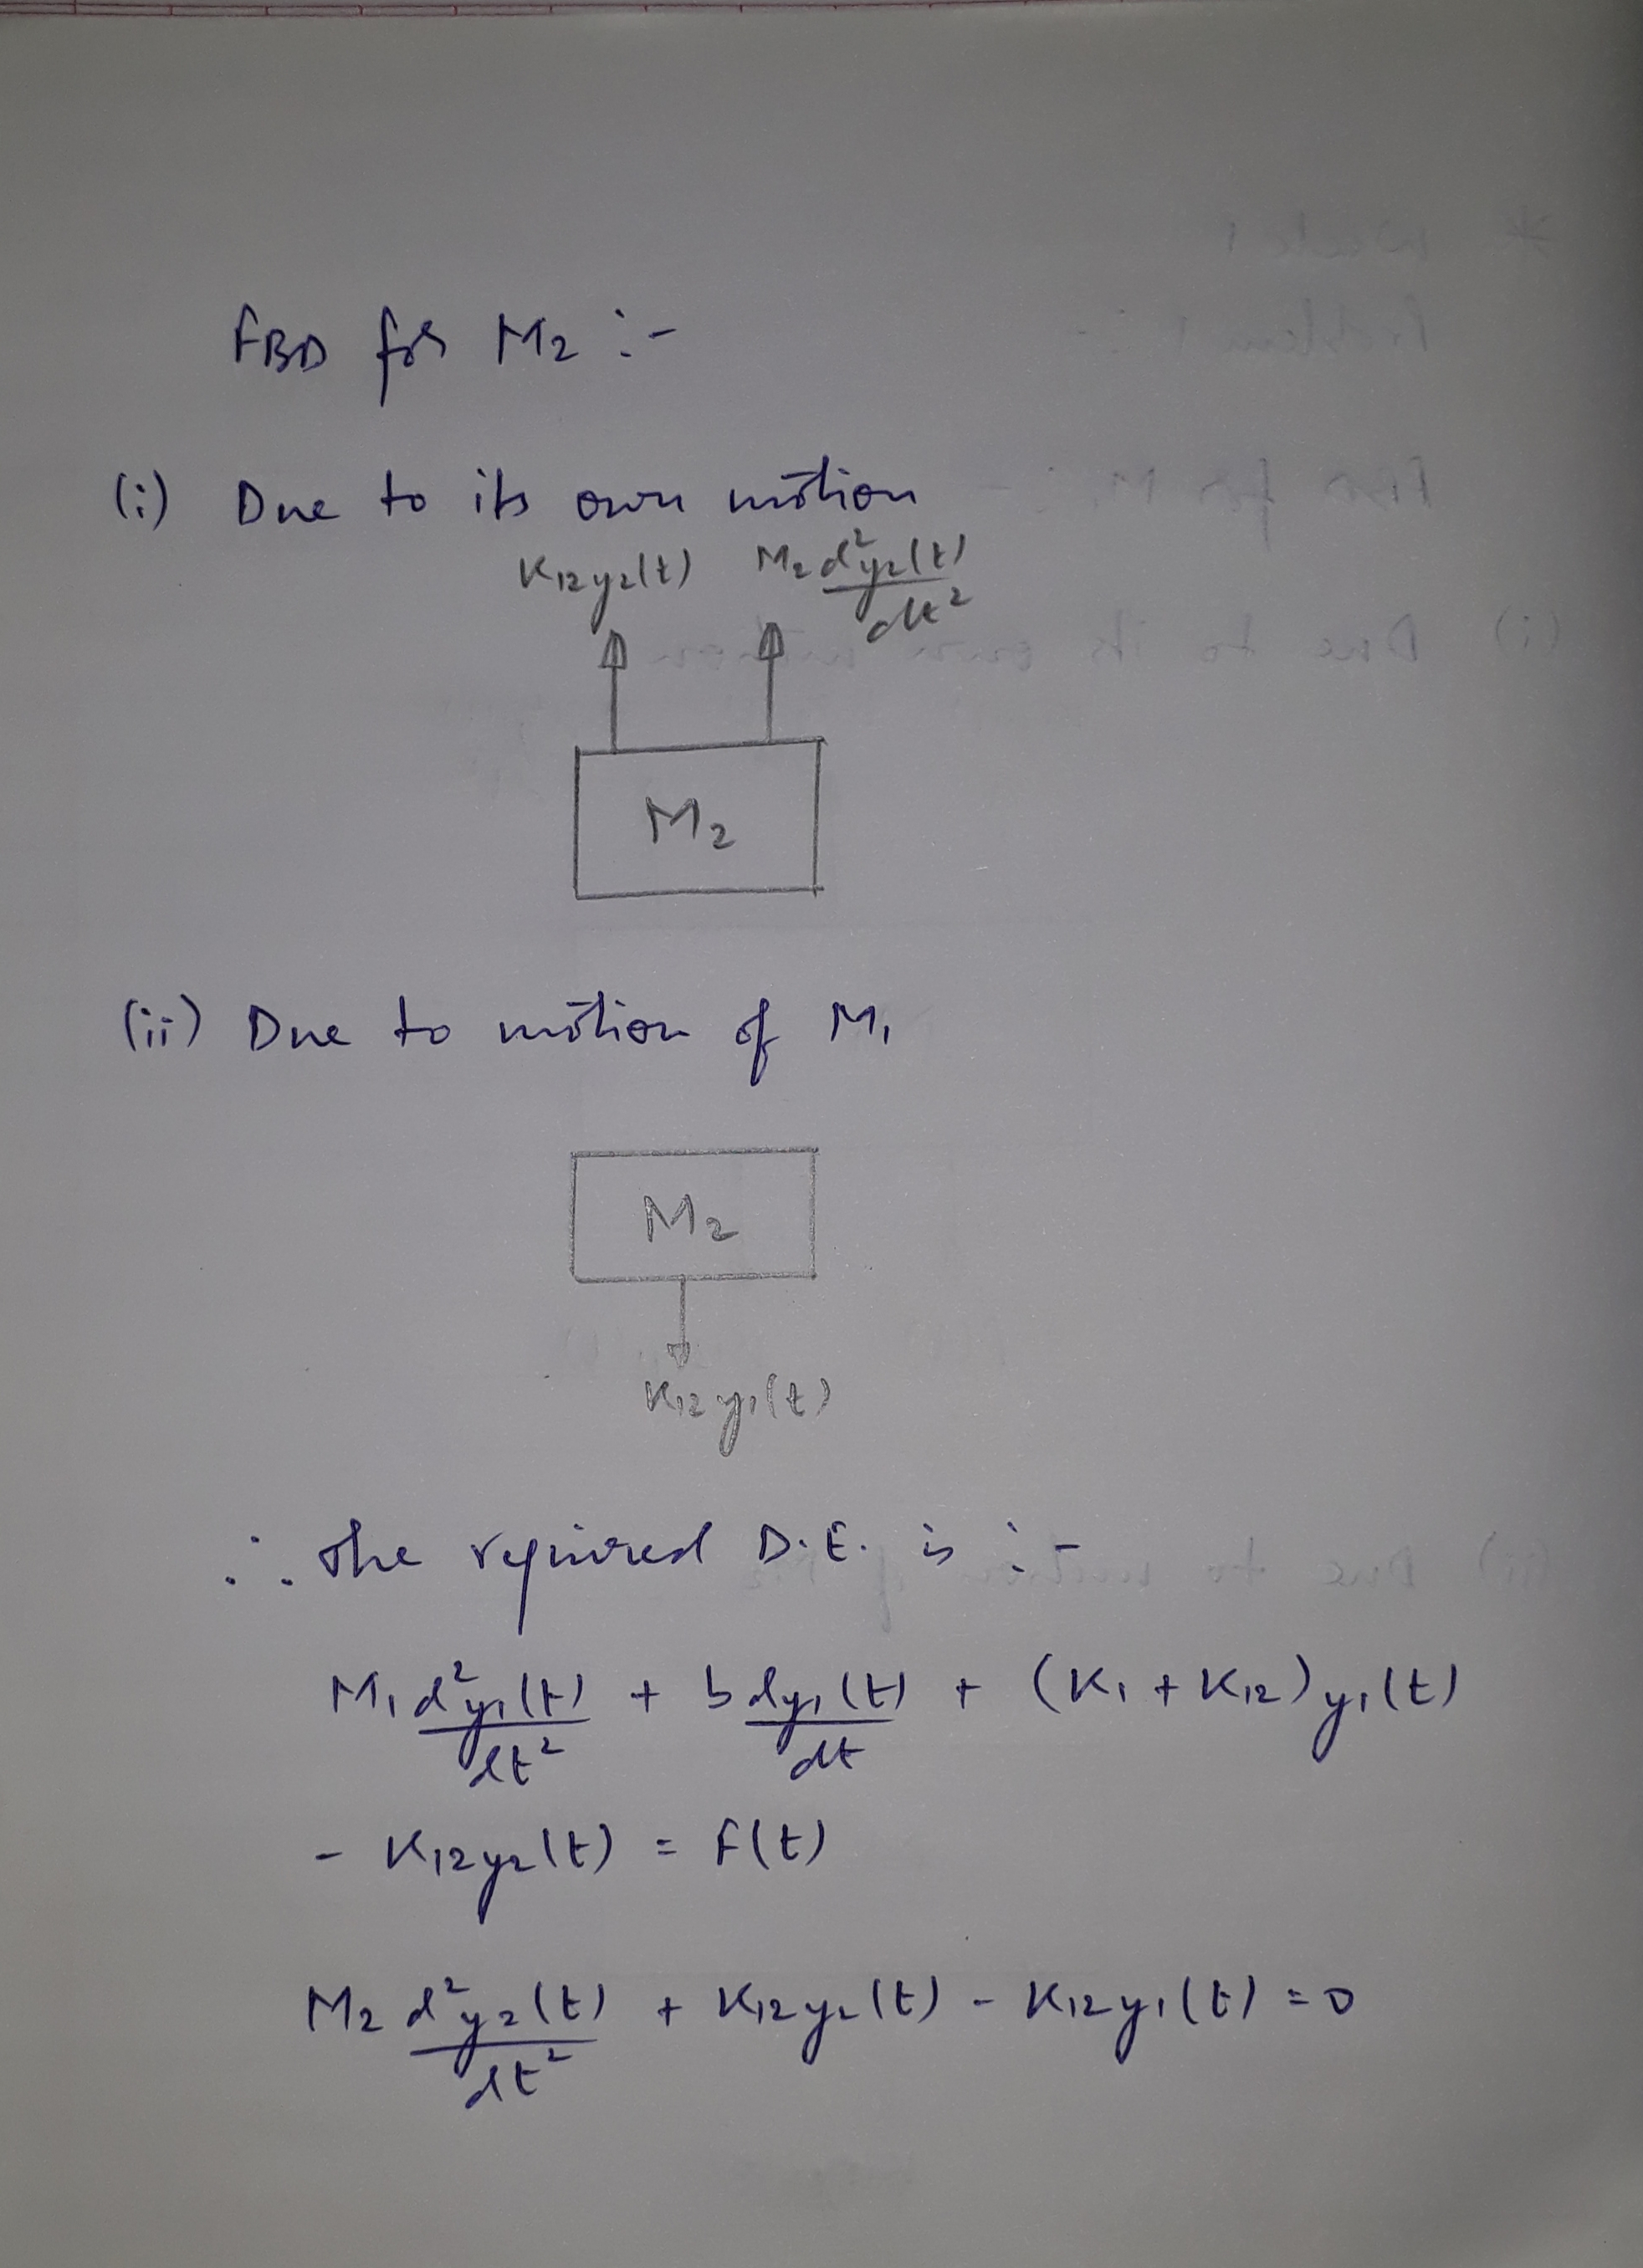 FBD for M₂ :-
(i) Due to its own motion
K₁₂y₂(t) M₂ d²y₂(t)/dt²
M₂
(ii) Due to motion of M₁
M₂
K₁₂y₁(t)
∴ The required D.E. is :-
M₁ d²y₁(t)/dt² + b dy₁(t)/dt + (K₁ + K₁₂) y₁(t)
- K₁₂y₂(t) = F(t)
M₂ d²y₂(t)/dt² + K₁₂y₂(t) - K₁₂y₁(t) = 0